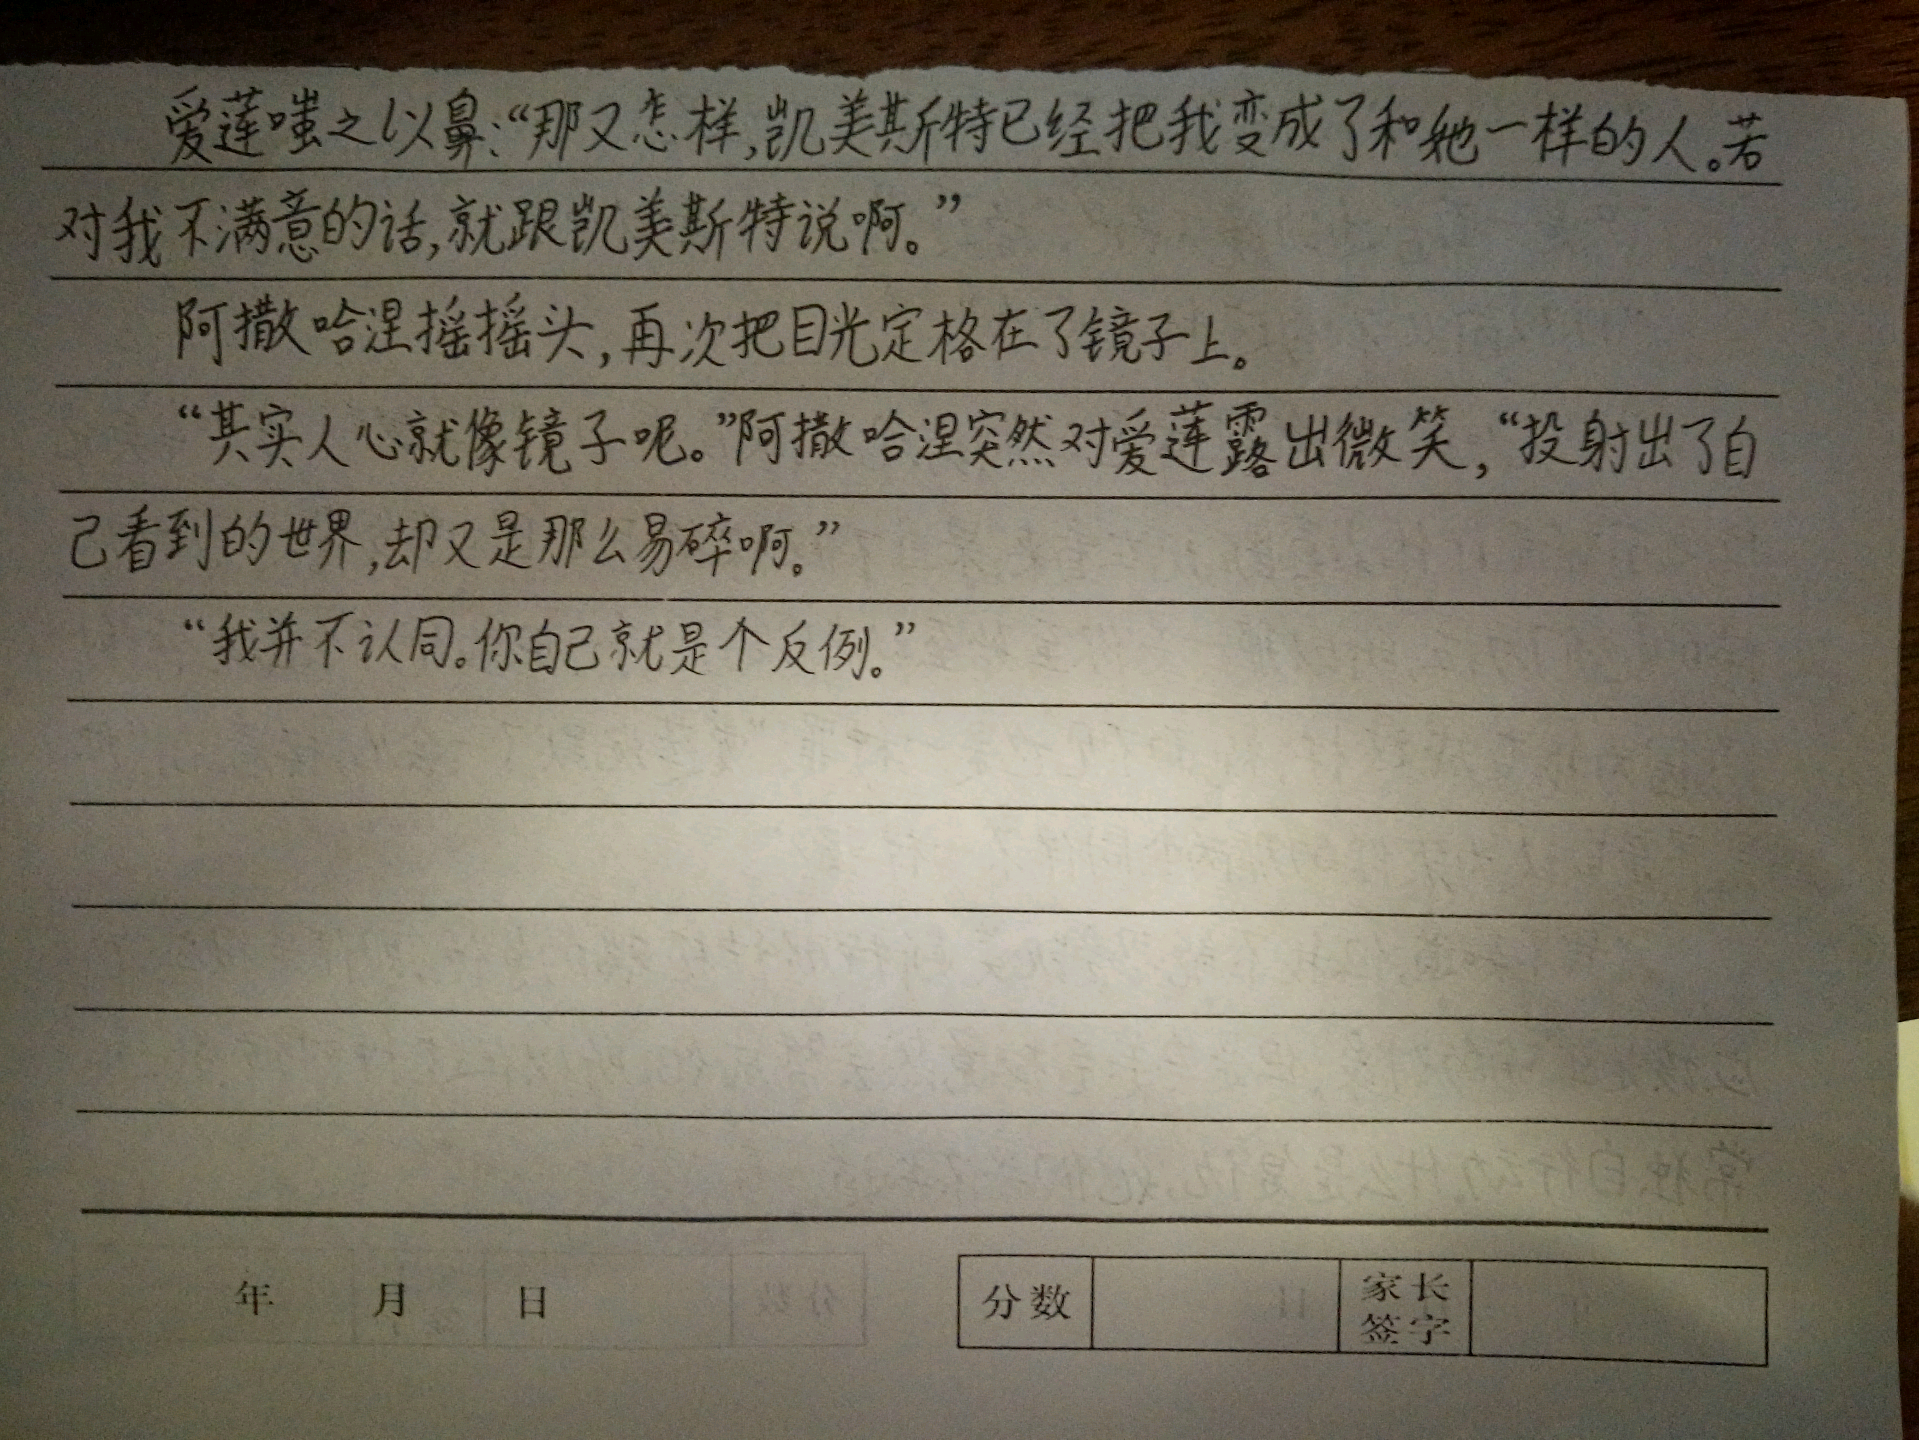 爱莲嗤之以鼻：“那又怎样，凯美斯特已经把我变成了和她一样的人。若
对我不满意的话，就跟凯美斯特说啊。”
阿撒哈涅摇摇头，再次把目光定格在了镜子上。
“其实人心就像镜子呢。”阿撒哈涅突然对爱莲露出微笑，“投射出了自
己看到的世界，却又是那么易碎啊。”
“我并不认同。你自己就是个反例。”
年 月 日
分数
家长
签字